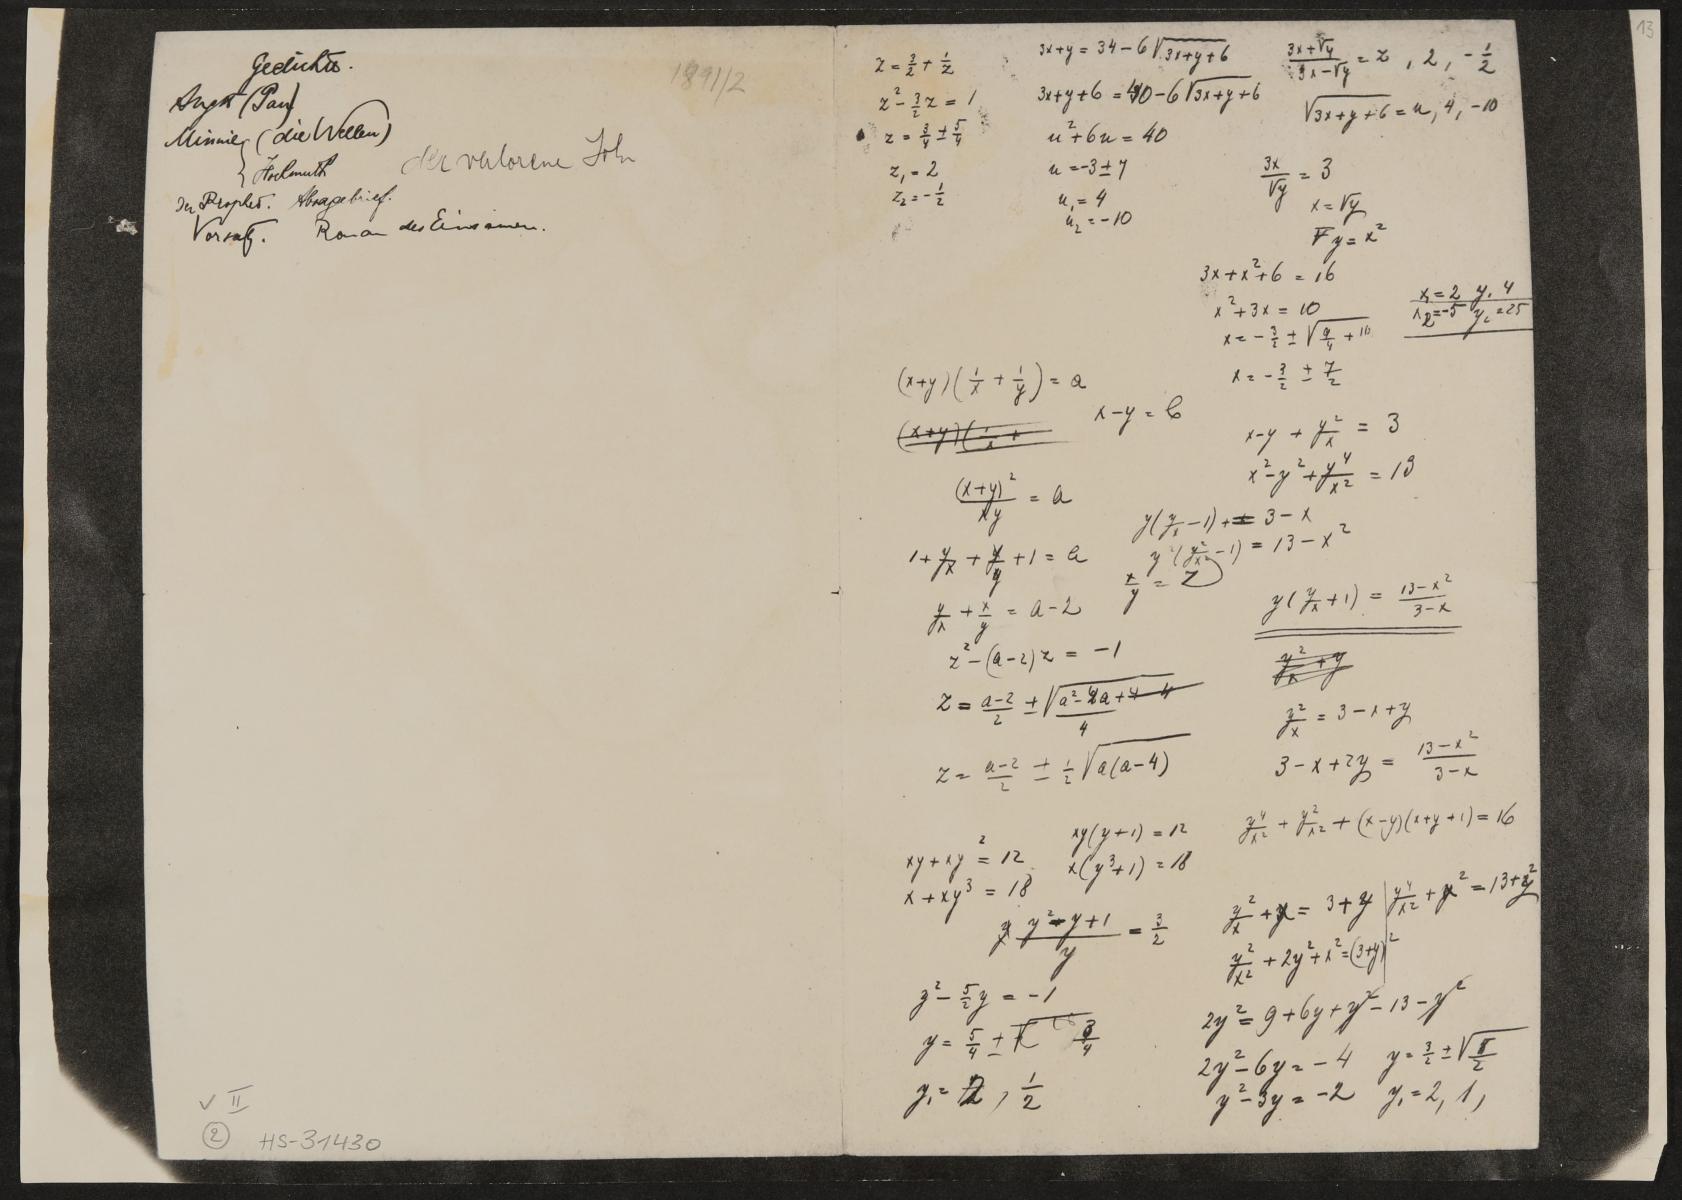 Gedichte.
Angst (Pan)
Minnie (die Wellen)
Hochmuth
der verlorene Sohn
Der Prophet. Absagebrief.
Vorsatz. Roman des Einsamen.
1891/2
13
z = 3/2 + 1/z
z² - 3/2 z = 1
z = 3/4 ± 5/4
z₁ = 2
z₂ = -1/2
3x+y = 34 - 6√(3x+y+6)
3x+y+6 = 40 - 6√(3x+y+6)
u² + 6u = 40
u = -3 ± 7
u₁ = 4
u₂ = -10
(3x+√y)/(3x-√y) = z, 2, -1/2
√(3x+y+6) = u, 4, -10
3x/√y = 3
x = √y
y = x²
3x + x² + 6 = 16
x² + 3x = 10
x = -3/2 ± √(9/4 + 10)
x = -3/2 ± 7/2
x₁ = 2 y₁ 4
x₂ = -5 y₂ = 25
(x+y)(1/x + 1/y) = a
x - y = b
(x+y)(1/x +
(x+y)²/xy = a
1 + y/x + x/y + 1 = a
y/x + x/y = a - 2
x/y = z
z² - (a-2)z = -1
z = (a-2)/2 ± √((a² - 4a + 4 - 4)/4)
z = (a-2)/2 ± 1/2 √(a(a-4))
xy + xy² = 12
x + xy³ = 18
xy(y+1) = 12
x(y³+1) = 18
(y² - y + 1)/y = 3/2
y² - 5/2 y = -1
y = 5/4 ± 3/4
y₁ = 2, 1/2
x - y + y²/x = 3
x² - y² + y⁴/x² = 13
y(y/x - 1) = 3 - x
y²(y²/x² - 1) = 13 - x²
y(y/x + 1) = (13-x²)/(3-x)
y²/x + y
y²/x = 3 - x + y
3 - x + 2y = (13-x²)/(3-x)
y⁴/x² + y²/x² + (x-y)(x+y+1) = 16
y²/x + x = 3 + y
y⁴/x² + x² = 13 + y²
y²/x² + 2y² + x² = (3+y)²
2y² = 9 + 6y + y² - 13 - y²
2y² - 6y = -4
y² - 3y = -2
y₁ = 2, 1,
✓ II
② HS-31430